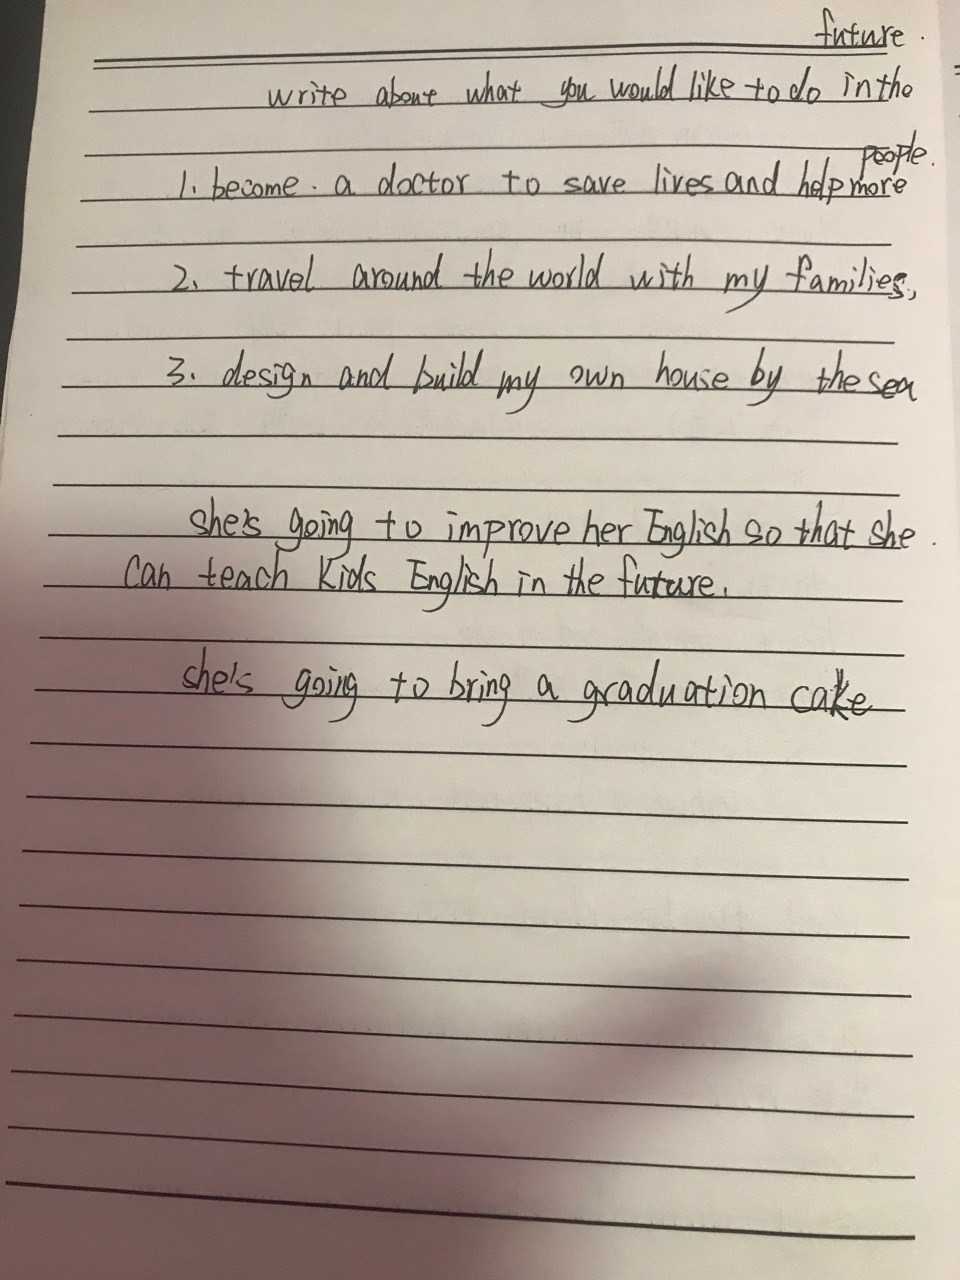 write about what you would like to do in the
future.
1. become. a doctor to save lives and help more
people.
2. travel around the world with my families,
3. design and build my own house by the sea
she's going to improve her English so that she.
Can teach Kids English in the future.
she's going to bring a graduation cake